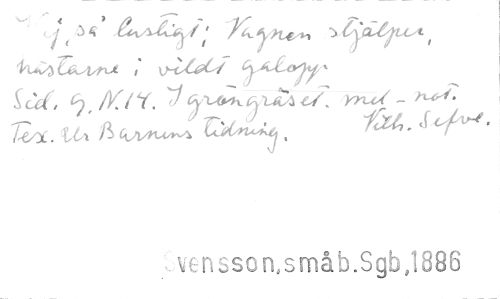 Nej, så lustigt; Vagnen stjälper,
hästarne i vildt galopp
Sid. 9. N.14. I gröngräset. mel-not.
Tex. Ur Barnens tidning. Vilh. Sefve.
Svensson,småb.Sgb,1886